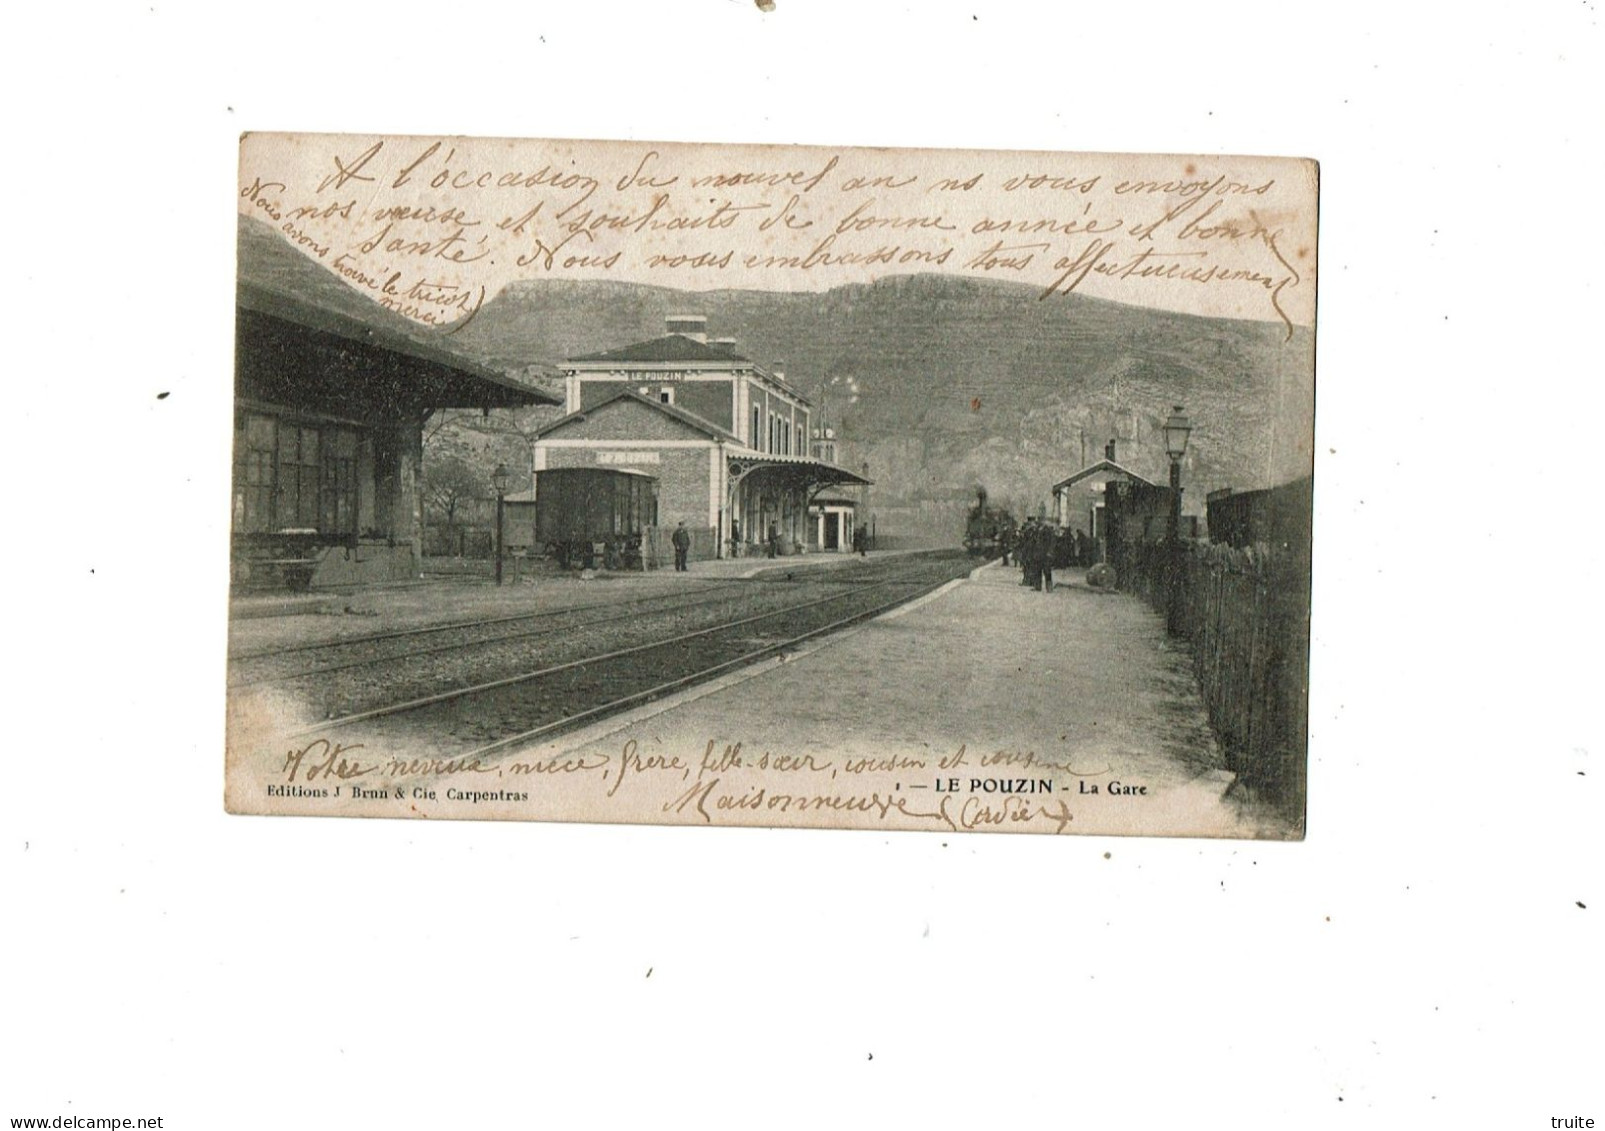 A l'occasion du nouvel an ns vous envoyons
nos vœuse et souhaits de bonne année et bonne
santé. Nous vous embrassons tous affectueusement
Nous avons trouvé le tricot
merci
LE POUZIN
Votre neveue, niece, frère, belle-sœur, cousin et cousine
Maisonneuve (Cordier)
Editions J Brun & Cie, Carpentras
— LE POUZIN - La Gare
www.delcampe.net
truite